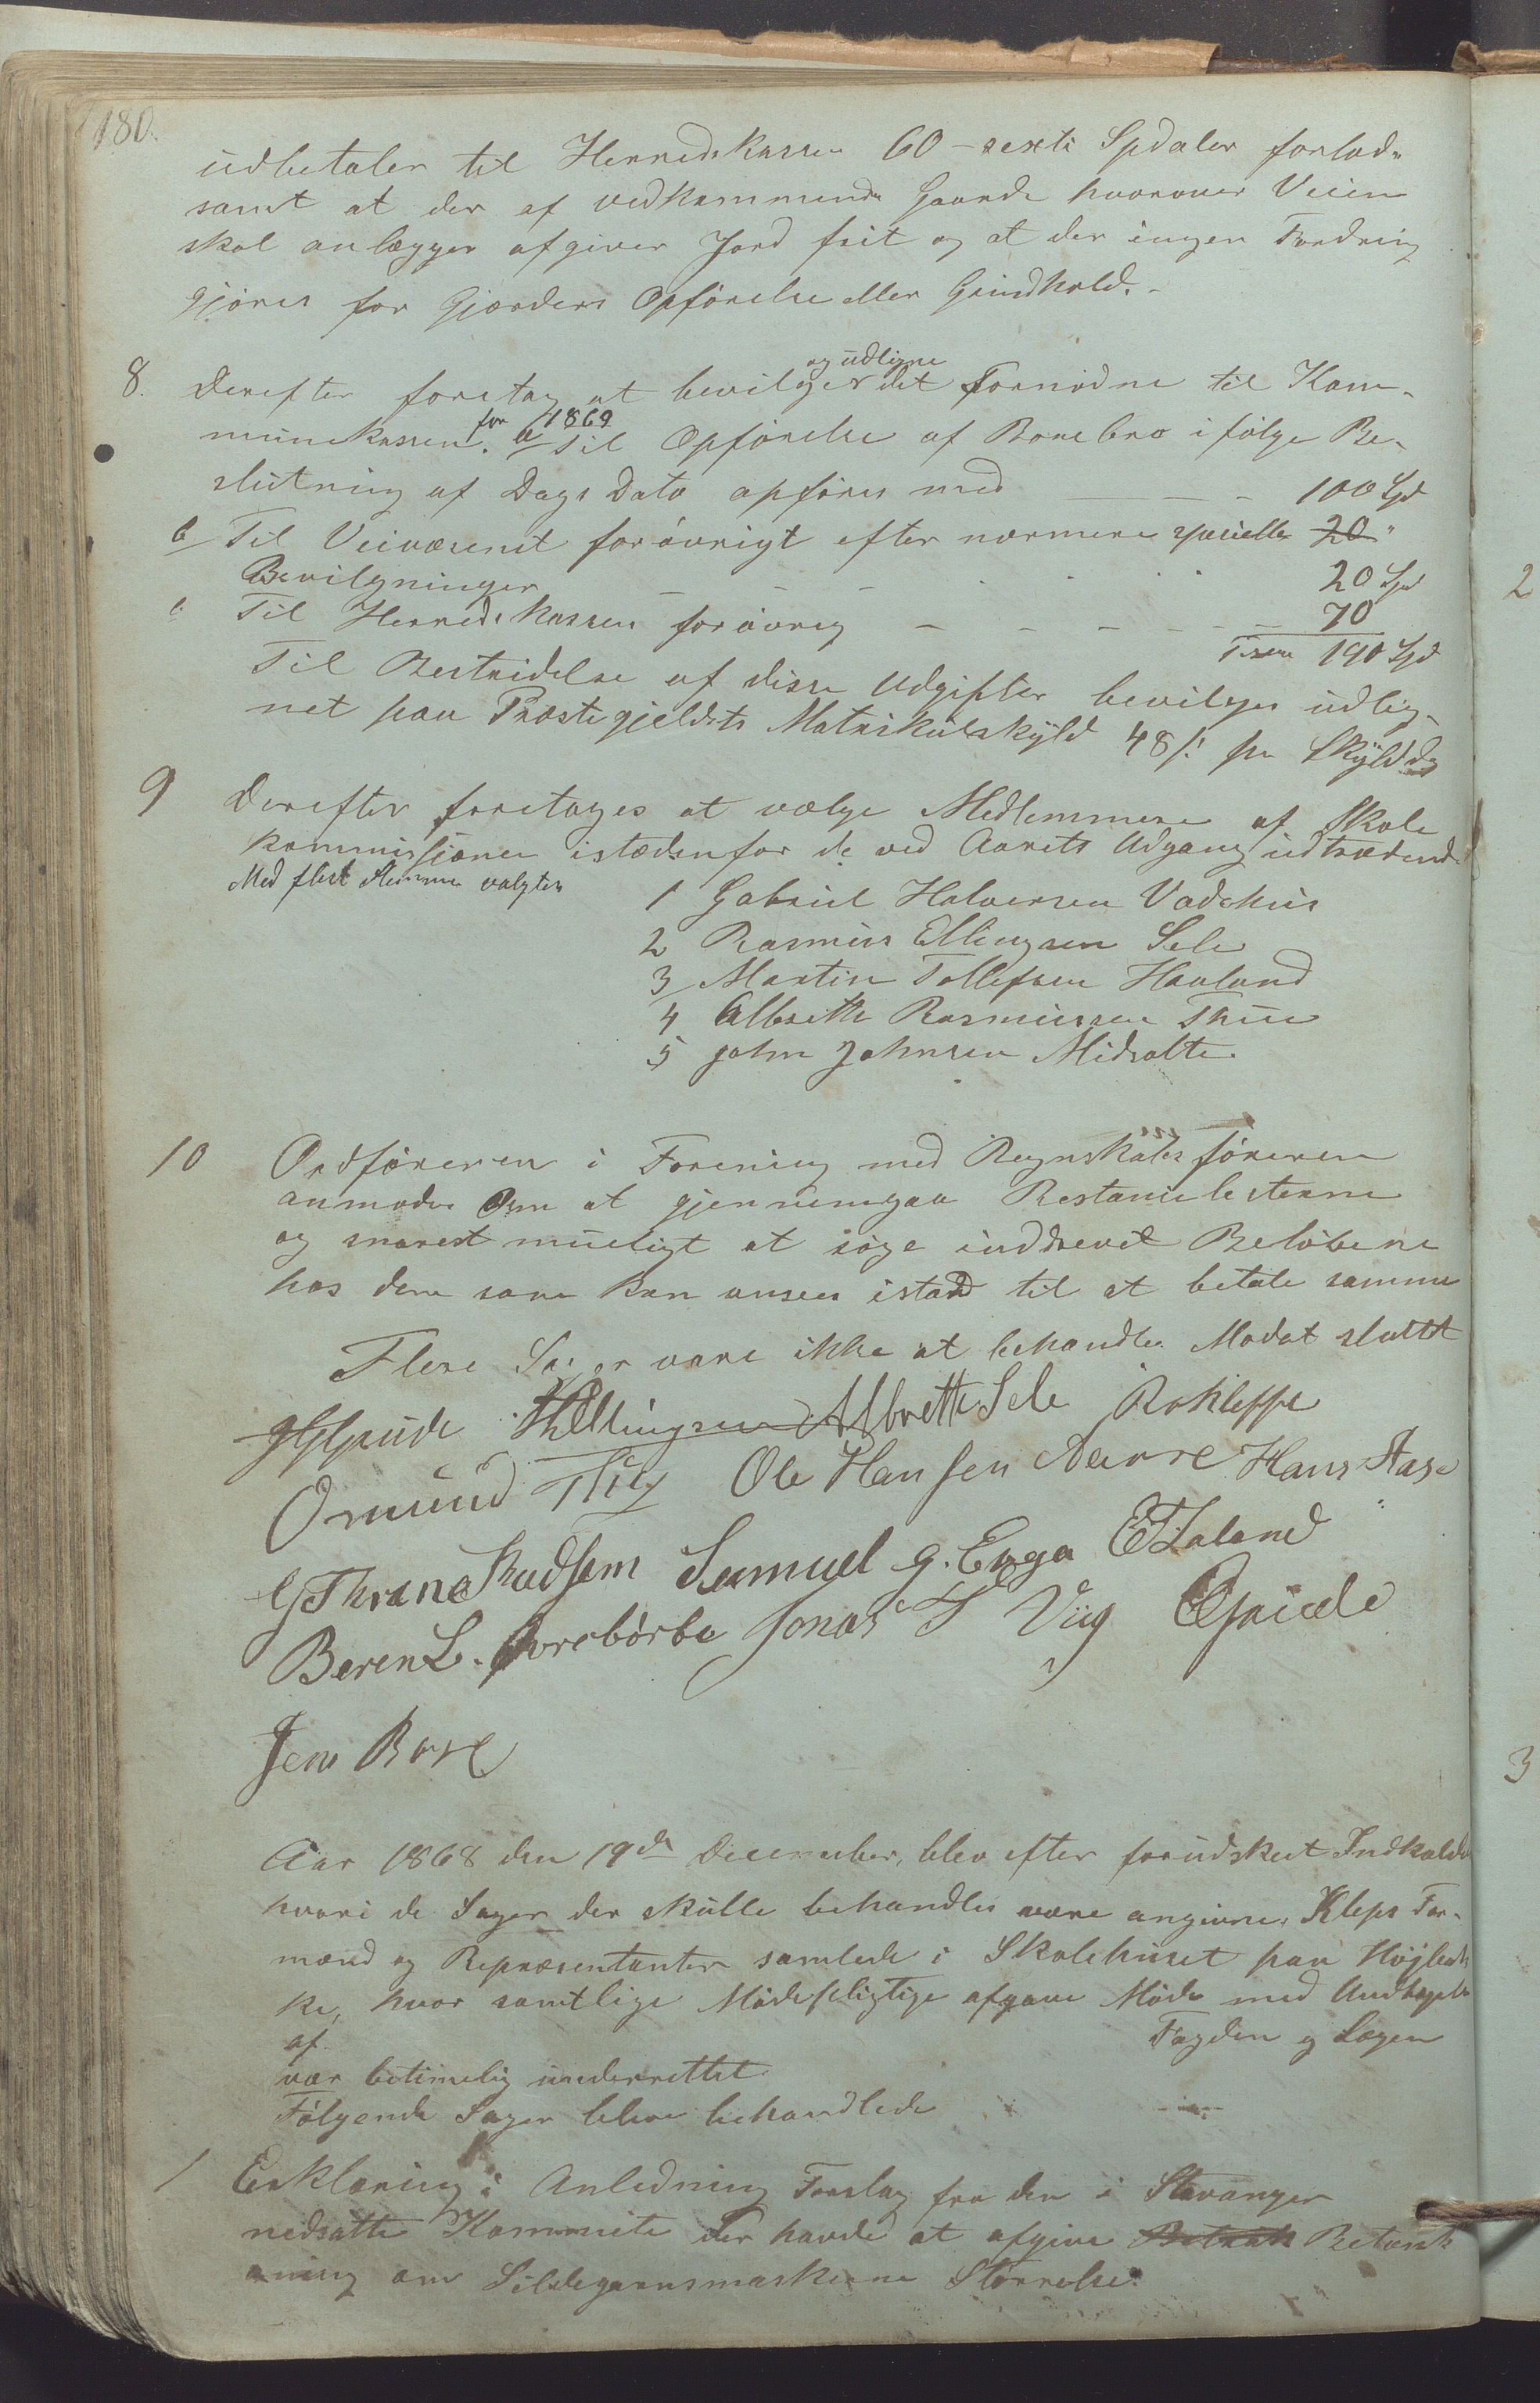 180.
udbetaler til Herredskassen 60 - sexti Spdaler forlods
samt at der af vedkommende Gaarde hvorover Veien
skal anlægges afgives Jord frit og at der ingen Fordring
gjøres for Gjærders Opførelse eller Grindhold. -
8. Derefter foretages at bevilges og udligne det Fornødne til Kom-
munekassen for 1869. a/ Til Opførelse af Borebro ifølge Be-
slutning af Dags Dato opføres med - - - 100 Spd
b/ Til Veivæsenet forøvrigt efter nærmere specielle 20 "
Bevilgninger - - - 20 Spd
c Til Herredskassen forøvrig - - - - - 70
Tilsam 190 Spd
Til Bestridelse af disse Udgifter bevilges udlig-
net paa Præstegjeldets Matrikulskyld 48 s. pr Skyldds
9 Derefter foretages at vælge Medlemmere af Skole
kommissionen istædenfor de ved Aarets Udgang udtrædende
Med flest Stemmer valgtes
1 Gabriel Halvorsen Vadskus
2 Rasmus Ellingsen Sele
3 Martin Tollefsen Haaland
4 Albreth Rasmussen Thu
5 John Johnsen Midsatte.
10 Ordføreren i Forening med Regnskabsføreren
anmodes om at gjennemgaa Restancelisterne
og snarest mueligt at søge inddrevet Beløbene
hos dem som kan ansees istand til at betale samme
Flere Sager vare ikke at behandle. Mødet sluttet
Ellingsen Albrett Sele R Kleppe
Omund Ole Hansen Hans Aase
G Thrane Samuel G. Enga
Beren L. Øvrebørbø Jonas T Viig
Jens Bore
Aar 1868 den 19de December, blev efter forudskeet Indkaldelse
hvori de Sager der skulle behandles vare angivne, Kleps For-
mænd og Repræsentanter samlede i Skolehuset paa Højlands
ke, hvor samtlige Mødepligtige afgave Møde med Undtagelse
af Fogden og Lægen
var betimelig underrettet
Følgende Sager bleve behandlede
1 Erklæring i Anledning Forslag fra den i Stavanger
nedsatte Kommite der havde at afgive Betænk Betænk
ning om Sildegarnsmaskerne Størrelse.
2
3